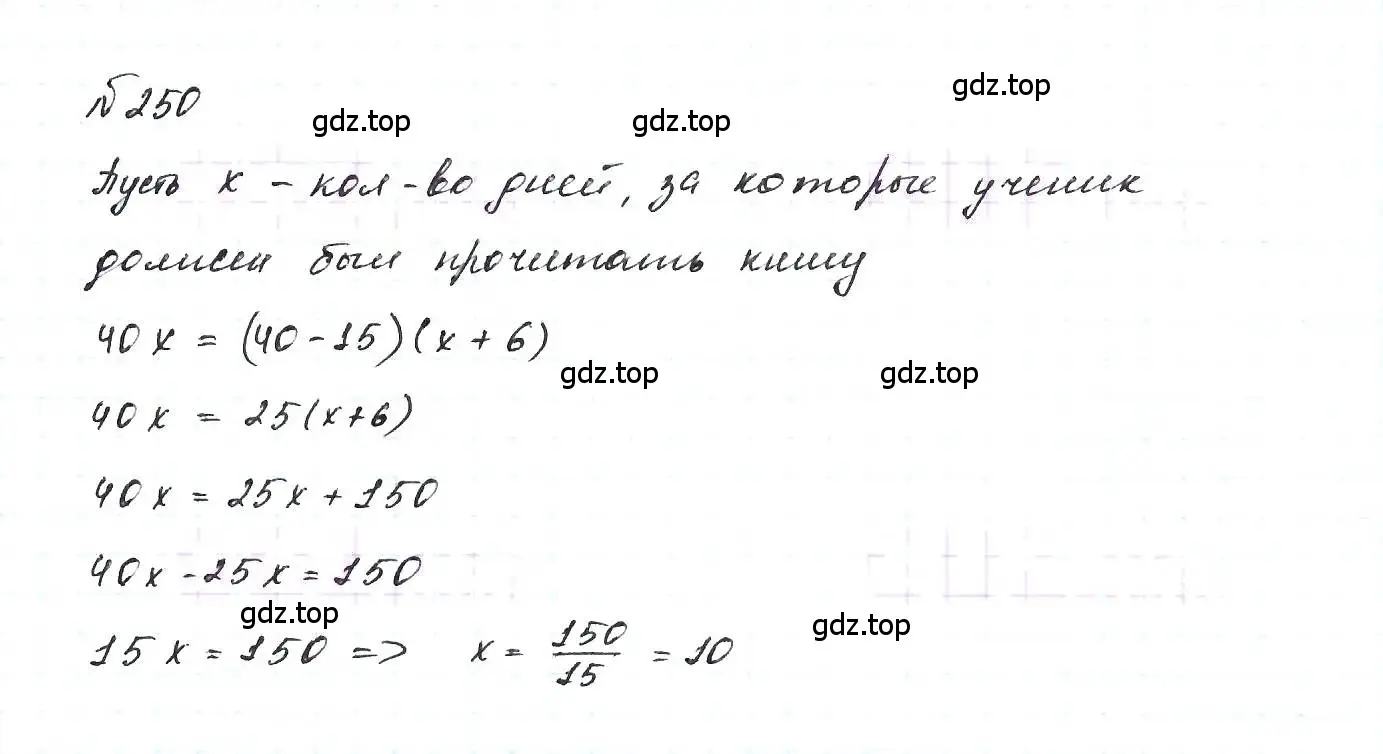 №250
gdz.top
gdz.top
gdz.top
Пусть x - кол-во дней, за которые ученик
должен был прочитать книгу
40x = (40-15)(x+6)
gdz.top
gdz.top
40x = 25(x+6)
40x = 25x + 150
40x - 25x = 150
gdz.top
gdz.top
15x = 150 => x = 150/15 = 10